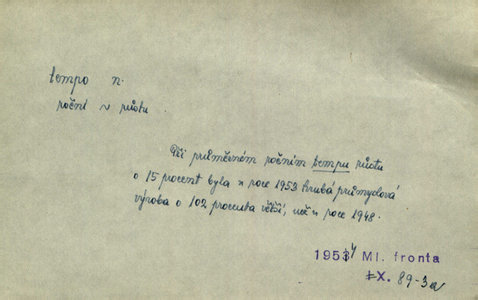 tempo n.
roční ~ růstu
Při průměrném ročním tempu růstu
o 15 procent byla v roce 1953 hrubá průmyslová
výroba o 102 procenta větší, než v roce 1948.
1954 Ml. fronta
X. 89-3a